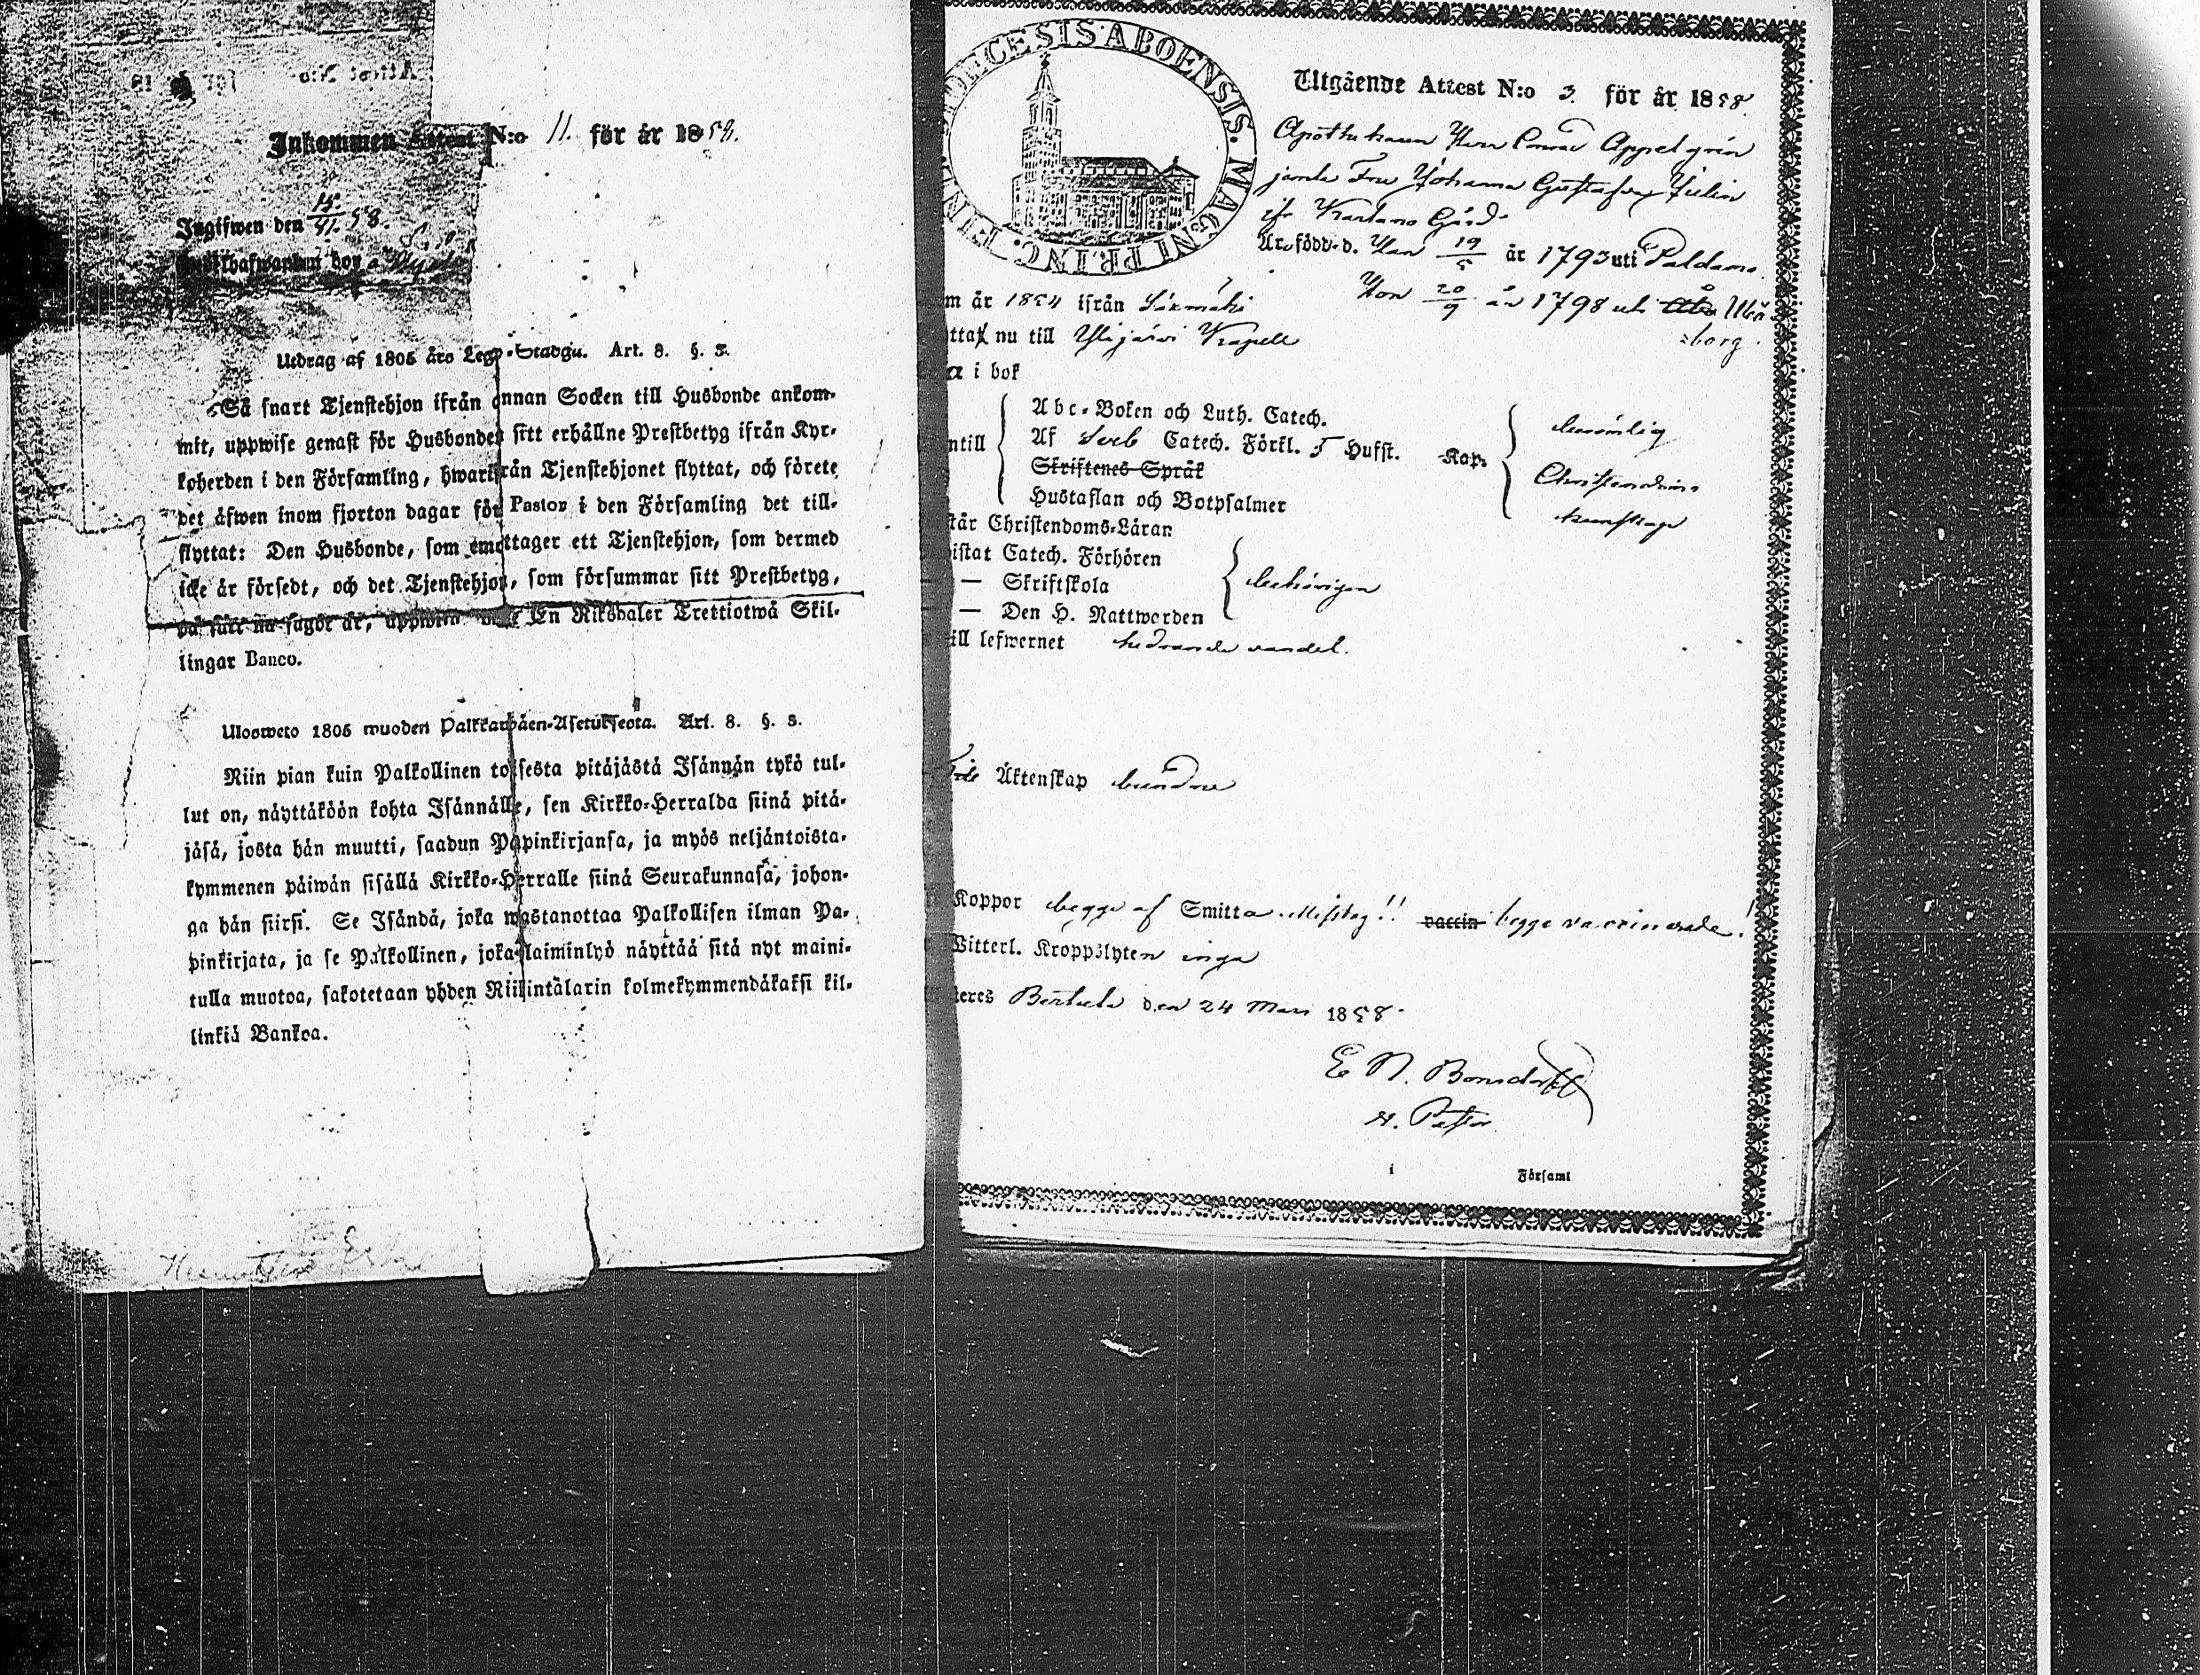 Inkommen Attest N:o 11. för år 1858.
Ingifwen den 15/11 58.
Utdrag af 1805 års Lego-Stadgu. Art. 8. §. 3.
Så snart Tjenstehjon ifrån annan Socken till Husbonde ankom-
mit, uppwise genast för Husbonden sitt erhållne Prestbetyg ifrån Kyr-
koherden i den Församling, hwarifrån Tjenstehjonet flyttat, och förete
det äfwen inom fjorton dagar för Pastor i den Församling det till-
flyttat: Den Husbonde, som emottager ett Tjenstehjon, som dermed
icke är försedt, och det Tjenstehjon, som försummar sitt Prestbetyg,
på sätt nu sagdt är, uppwisa En Riksdaler Trettiotwå Skil-
lingar Banco.
Uloosweto 1805 wuoden Palkkawäen-Asetuksesta. Art. 8. §. 3.
Niin pian kuin Palkollinen toisesta pitäjästä Isännän tykö tul-
lut on, näyttäköön kohta Isännälle, sen Kirkko-Herralda siinä pitä-
jäsä, josta hän muutti, saadun Papinkirjansa, ja myös neljäntoista-
kymmenen päiwän sisällä Kirkko-Herralle siinä Seurakunnasa, johon-
ga hän siirsi. Se Isändä, joka wastanottaa Palkollisen ilman Pa-
pinkirjata, ja se Palkollinen, joka laiminlyö näyttää sitä nyt maini-
tulla muotoa, sakotetaan yhden Riikintalarin kolmekymmendäkaksi kil-
linkiä Bankoa.
DIOECESIS ABOENSIS. MAGNI PRINC. FINL.
Utgående Attest N:o 3. för år 1858
Apothekaren Herr Conrad Appelgrén
jemte Fru Johanna Gustafva Julin
ifr Kartano Gård
Är född d. Han 19/5 år 1793 uti Paldamo.
Hon 20/9 år 1798 uti Åbo Uleå-
borg.
m år 1854 ifrån Säxmäki
ttat nu till Ylijärvi Kapell
a i bok
ntill
Abc-Boken och Luth. Catech.
Af Sveb Catech. Förkl. 5 Hufst. Kap.
Skriftenes Språk
Hustaflan och Botpsalmer
berömlig
Christendoms
kunskap
står Christendoms-Läran
istat Catech. Förhören
— Skriftskola
— Den H. Nattwarden
behörigen
ill lefwernet hedrande vandel.
Äktenskap bundne
Koppor begge af Smitta. Misstag!! vaccin begge vaccinerade!
Witterl. Kroppslyten inga
teres Bertula den 24 Mars 1858
E N. Bonsdorff
i Församl